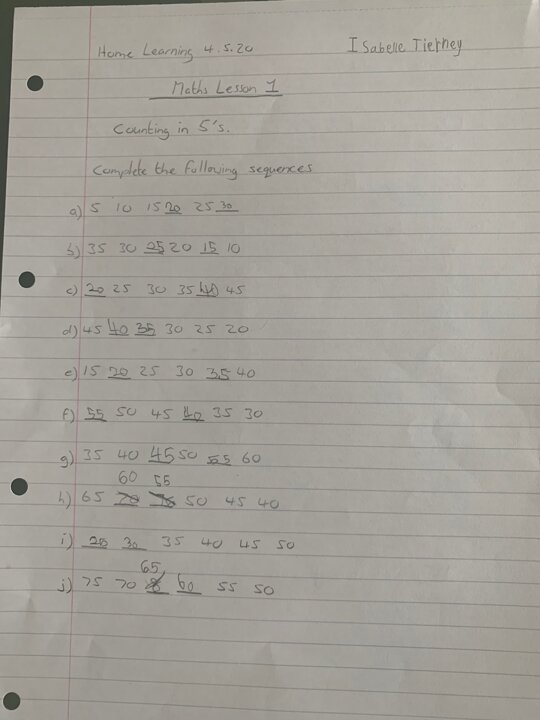 Home Learning 4.5.20 Isabelle Tierney
Maths Lesson 1
Counting in 5's.
Complete the following sequences
a) 5 10 15 20 25 30
b) 35 30 25 20 15 10
c) 20 25 30 35 40 45
d) 45 40 35 30 25 20
e) 15 20 25 30 35 40
f) 55 50 45 40 35 30
g) 35 40 45 50 55 60
60 55
h) 65 70 50 45 40
i) 30 35 40 45 50
65
j) 75 70 60 55 50